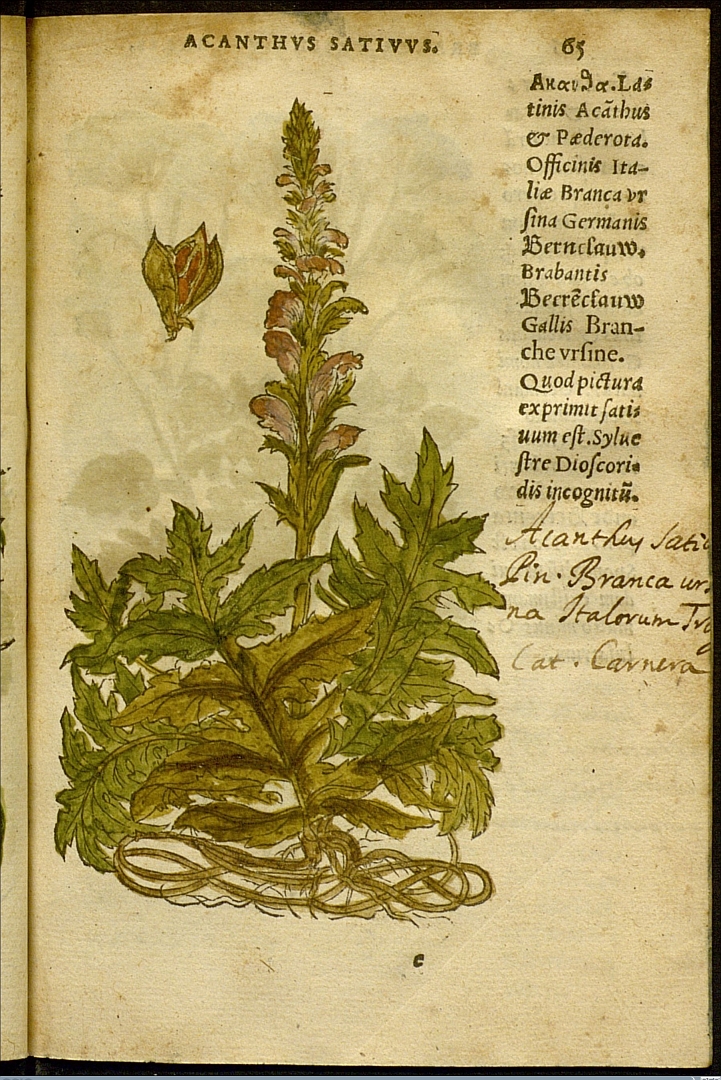 ACANTHVS SATIVVS.
65
Ακανθα. La⸗
tinis Acãthus
& Pæderota.
Officinis Ita-
liæ Branca vr
ſina Germanis
Bernclauw.
Brabantis
Beerẽclauw
Gallis Bran-
che vrſine.
Quod pictura
exprimit ſati⸗
uum eſt. Sylue
ſtre Dioſcori⸗
dis incognitũ.
Acanthus Sati
Pin. Branca ur
na Italorum
Cat. Carnera
c